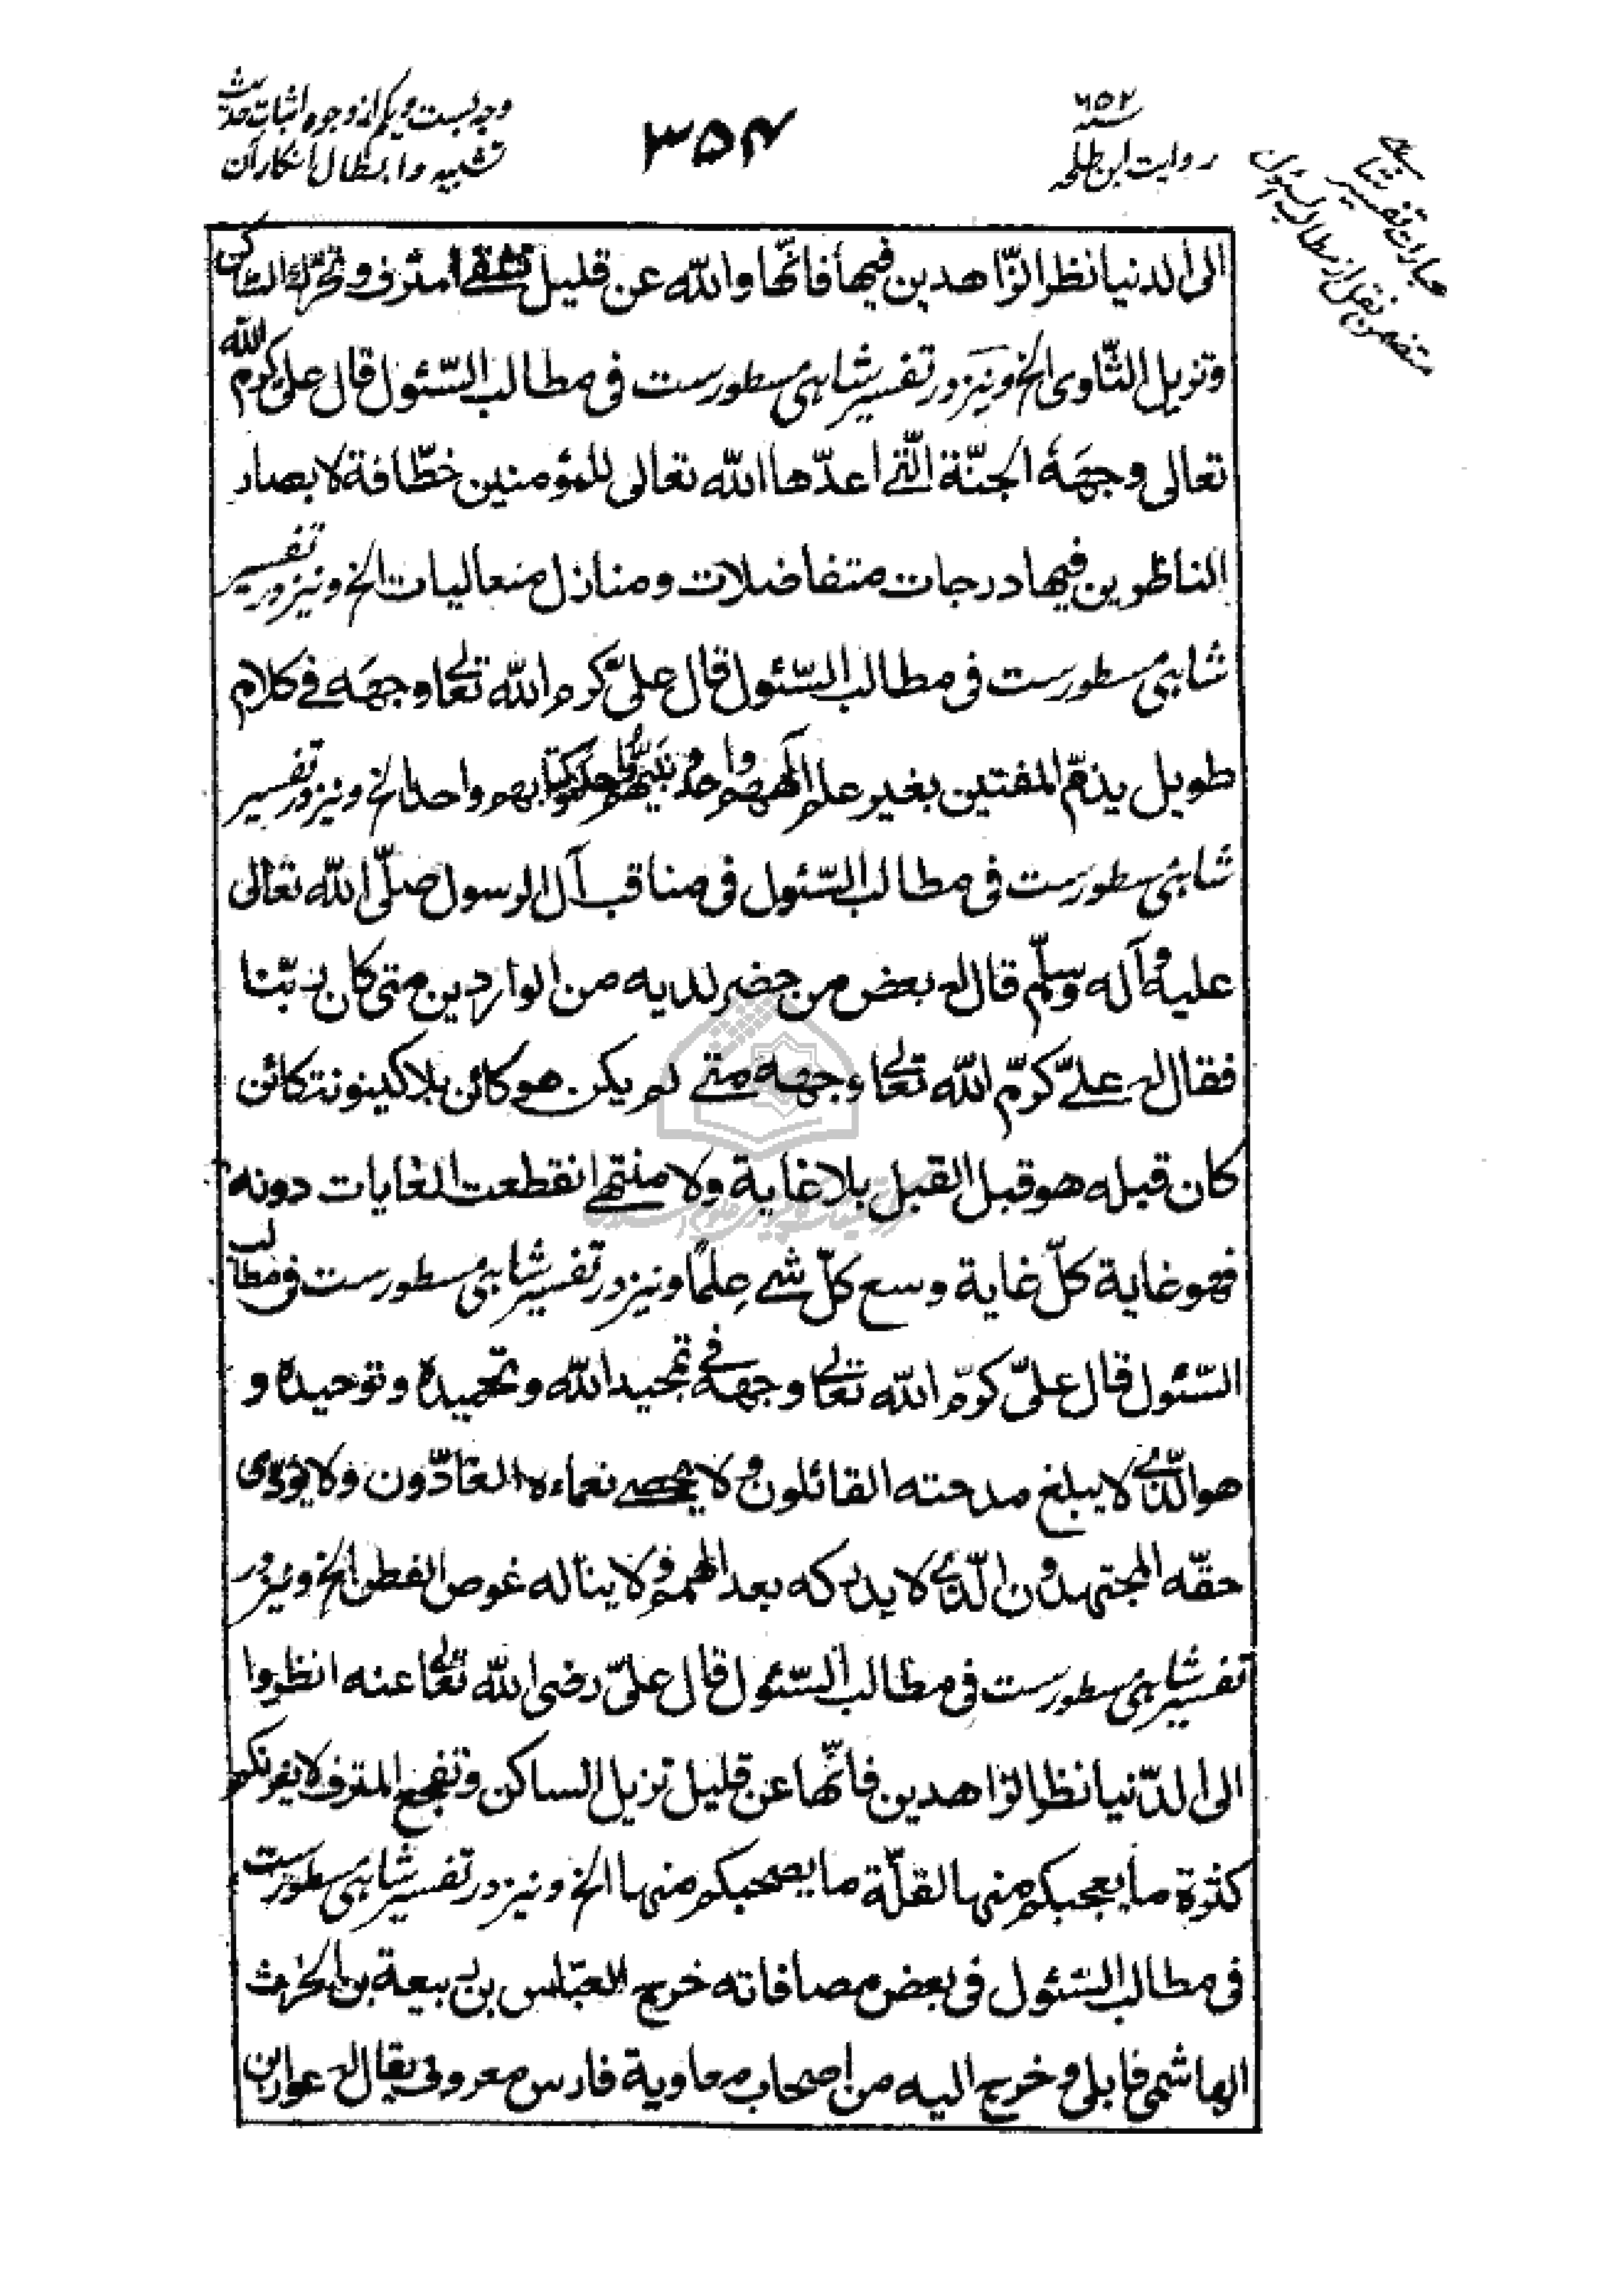 وجه بست و یکم از وجوه اثبات حدیث
تشبیه و ابطال انکار آن
۳۵۴
۶۵۲
روایت ابن طلحه
عبارات تفسیر شاهی
متضمن نقل از مطالب السئول
الی الدنیا نظر الزّاهدین فیها فانّها والله عن قلیل تشقی المترف و تحرّك الساکن
وتزیل الثّاوی الخ و نیز در تفسیر شاهی مسطورست فی مطالب السّئول قال علی کرم الله
تعالی وجهَهُ الجنّة الّتی اعدّها الله تعالی للمؤمنین خطّافة لابصار
الناظرین فیها درجات متفاضلات ومنازل متعالیات الخ و نیز در تفسیر
شاهی مسطورست فی مطالب السّئول قال علیّ کرم الله تعالی وجهَه فی کلام
طویل یذمّ المفتین بغیر علم الٰههم واحد و نبیّهم واحد و کتابهم واحد الخ و نیز در تفسیر
شاهی مسطورست فی مطالب السّئول فی مناقب آل الرسول صلّی الله تعالی
علیه وآله وسلّم قال له بعض من حضر لدیه من الواردین متی کان ربّنا
فقال له علیّ کرّم الله تعالی وجهه متی لم یکن هو کائن بلا کینونت کائن
کان قبله هو قبل القبل بلا غایة ولا منتهی انقطعت الغایات دونه
فهو غایة کلّ غایة وسع کلّ شیء عِلمًا و نیز در تفسیر شاهی مسطورست فی مطالب
السّئول قال علیّ کرّم الله تعالی وجهه فی تمجید الله وتحمیده وتوحیده و
هو الّذی لا یبلغ مدحته القائلون و لا یحصی نعماءه العادّون ولا یؤدّی
حقّه المجتهدون الّذی لا یدرکه بعد الهمم ولا یناله غوص الفطن الخ و نیز در
تفسیر شاهی مسطورست فی مطالب السّئول قال علیّ رضی الله تعالی عنه انظروا
الی الدّنیا نظر الزاهدین فانّها عن قلیل تزیل الساکن وتفجع المترف لا یغرنکم
کثرة ما یعجبکم منها لقلّة ما یصحبکم منها الخ و نیز در تفسیر شاهی مسطورست
فی مطالب السّئول فی بعض مصافاته خرج العبّاس بن ربیعة بن الحرث
الهاشمی فابلی وخرج الیه من اصحاب معاویة فارس معروف یقال له عرار بن